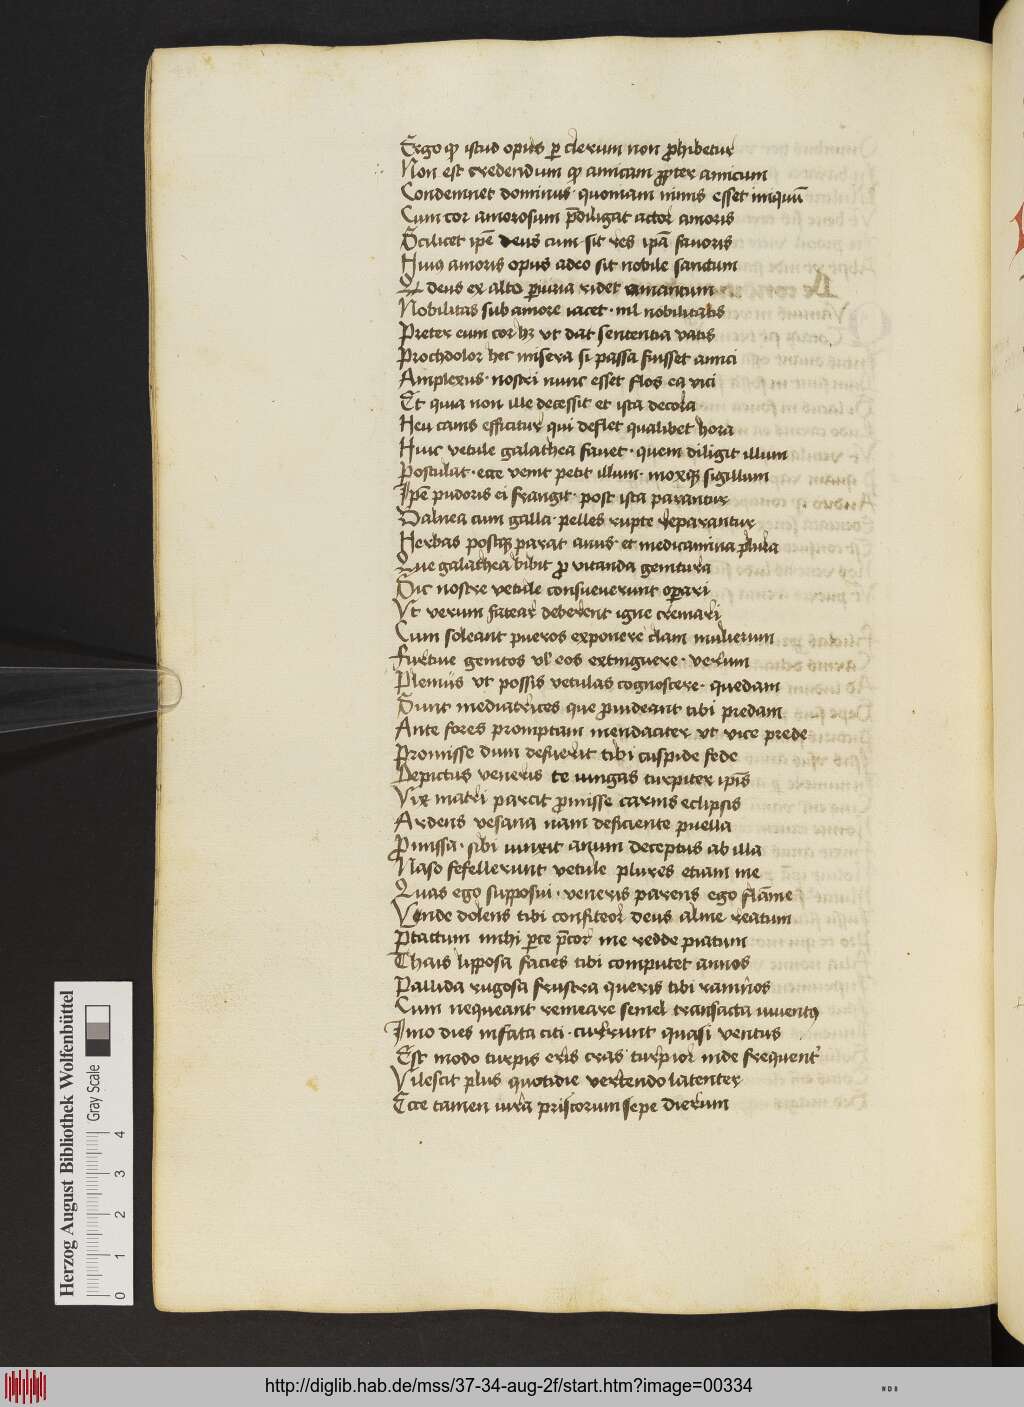 Ergo qp istud opus p clerum non phibetur
Non est credendum qp amicam ppter amicum
Condemnet dominus quoniam nimis esset iniquū
Cum cor amorosum p̄diligat actor amoris
Scilicet ipē deus cum sit res ipā fauoris
Huiꝰ amoris opus adeo sit nobile sanctum
Qd deus ex alto piuria ridet amantum
Nobilitas sub amore iacet · nil nobilitatis
Preter eum cor hꝫ vt dat sententia vatis
Prochdolor hec misera si passa fuisset amici
Amplexus · nostri nunc esset flos ea vici
Et quia non ille decessit et ista decora
Heu canis efficitur qui deflet qualibet hora
Huic vetule galathea fauet · quem diligit illum
Postulat · ecce venit petit illum · moxqꝫ sigillum
Ipē pudoris ei frangit · post ista parantur
Balnea cum galla · pelles rupte reparantur
Herbas postqꝫ parat anus et medicamina plura
Que galathea bibit p vitanda genitura
Sic nostre vetule consueuerunt opari
Vt verum fatear deberent igne cremari
Cum soleant pueros exponere clam mulierum
Furtiue genitos vl eos extinguere · verum
Pleniꝰ vt possis vetulas cognoscere · quedam
Sunt mediatrices que puideant tibi predam
Ante fores promptam mendaciter vt vice prede
Promisse dum defuerit tibi cuspide fede
Depictus veneris te iungas turpiter ipīs
Vix matri parcit pmisse carnis eclipsis
Ardens vesana nam deficiente puella
Pmissa · sibi iunxit anum deceptus ab illa
Naso fefellerunt vetule plures etiam me
Quas ego supposui · veneris parens ego flāme
Vnde dolens tibi confiteor deus alme reatum
Ptactum mihi pce p̄cor me redde piatum
Thais lipposa facies tibi computet annos
Pallida rugosa frustra queris tibi rannos
Cum nequeant remeare semel transacta iuuentꝰ
Imo dies infata citi · currunt quasi ventus
Est modo turpis eris cras turpior inde frequent'
Vilescit plus quotidie vertendo latenter
Ecce tamen iura priscorum sepe dierum
Herzog August Bibliothek Wolfenbüttel
Gray Scale
0 1 2 3 4
http://diglib.hab.de/mss/37-34-aug-2f/start.htm?image=00334